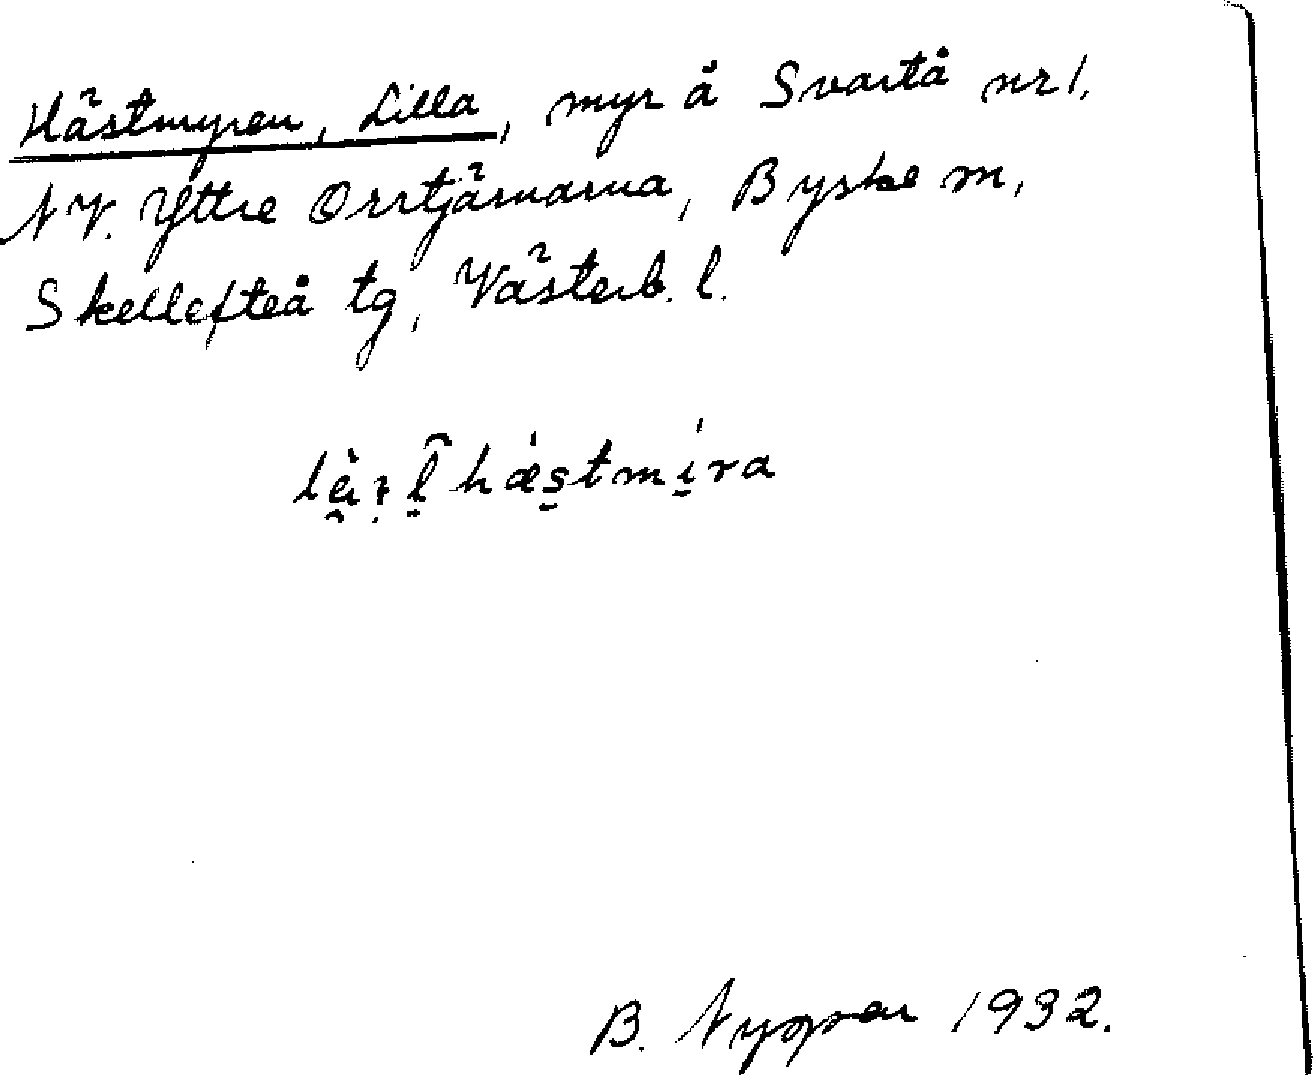 Hästmyren, Lilla, myr å Svartå nr 1,
NV. Yttre Orrtjärnarna, Byske sn,
Skellefteå tg, Västerb. l.
hæstmira
B. 1932.